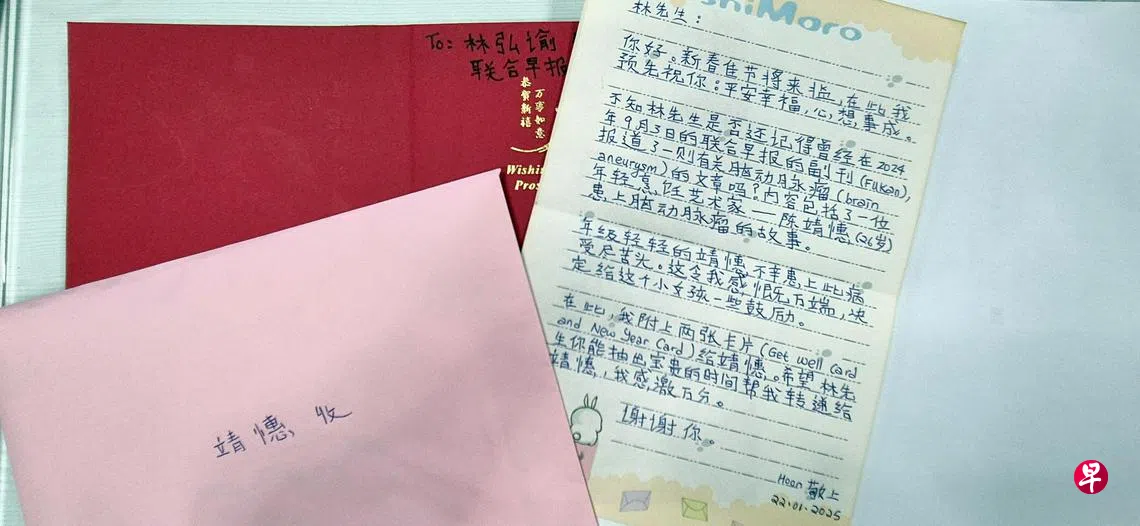 To: 林弘谕
联合早报
恭贺新禧
万事如意
Wishi
Pros
shiMoro
林先生：
你好。新春佳节将来临，在此我
预先祝你：平安幸福，心想事成。
不知林先生是否还记得曾经在2024
年9月3日的联合早报的副刊(Fukan),
报道了一则有关脑动脉瘤(brain
aneurysm)的文章吗？内容包括了一位
年轻烹饪艺术家——陈靖憓(26岁)
患上脑动脉瘤的故事。
年级轻轻的靖憓，不幸患上此病
受尽苦头。这令我感慨万端，决
定给这个小女孩一些鼓励。
在此，我附上两张卡片(Get well Card
and New Year Card)给靖憓。希望林先
生你能抽出宝贵的时间帮我转递给
靖憓，我感激万分。
谢谢你。
Hoon 敬上
22.01.2025
靖憓 收
早